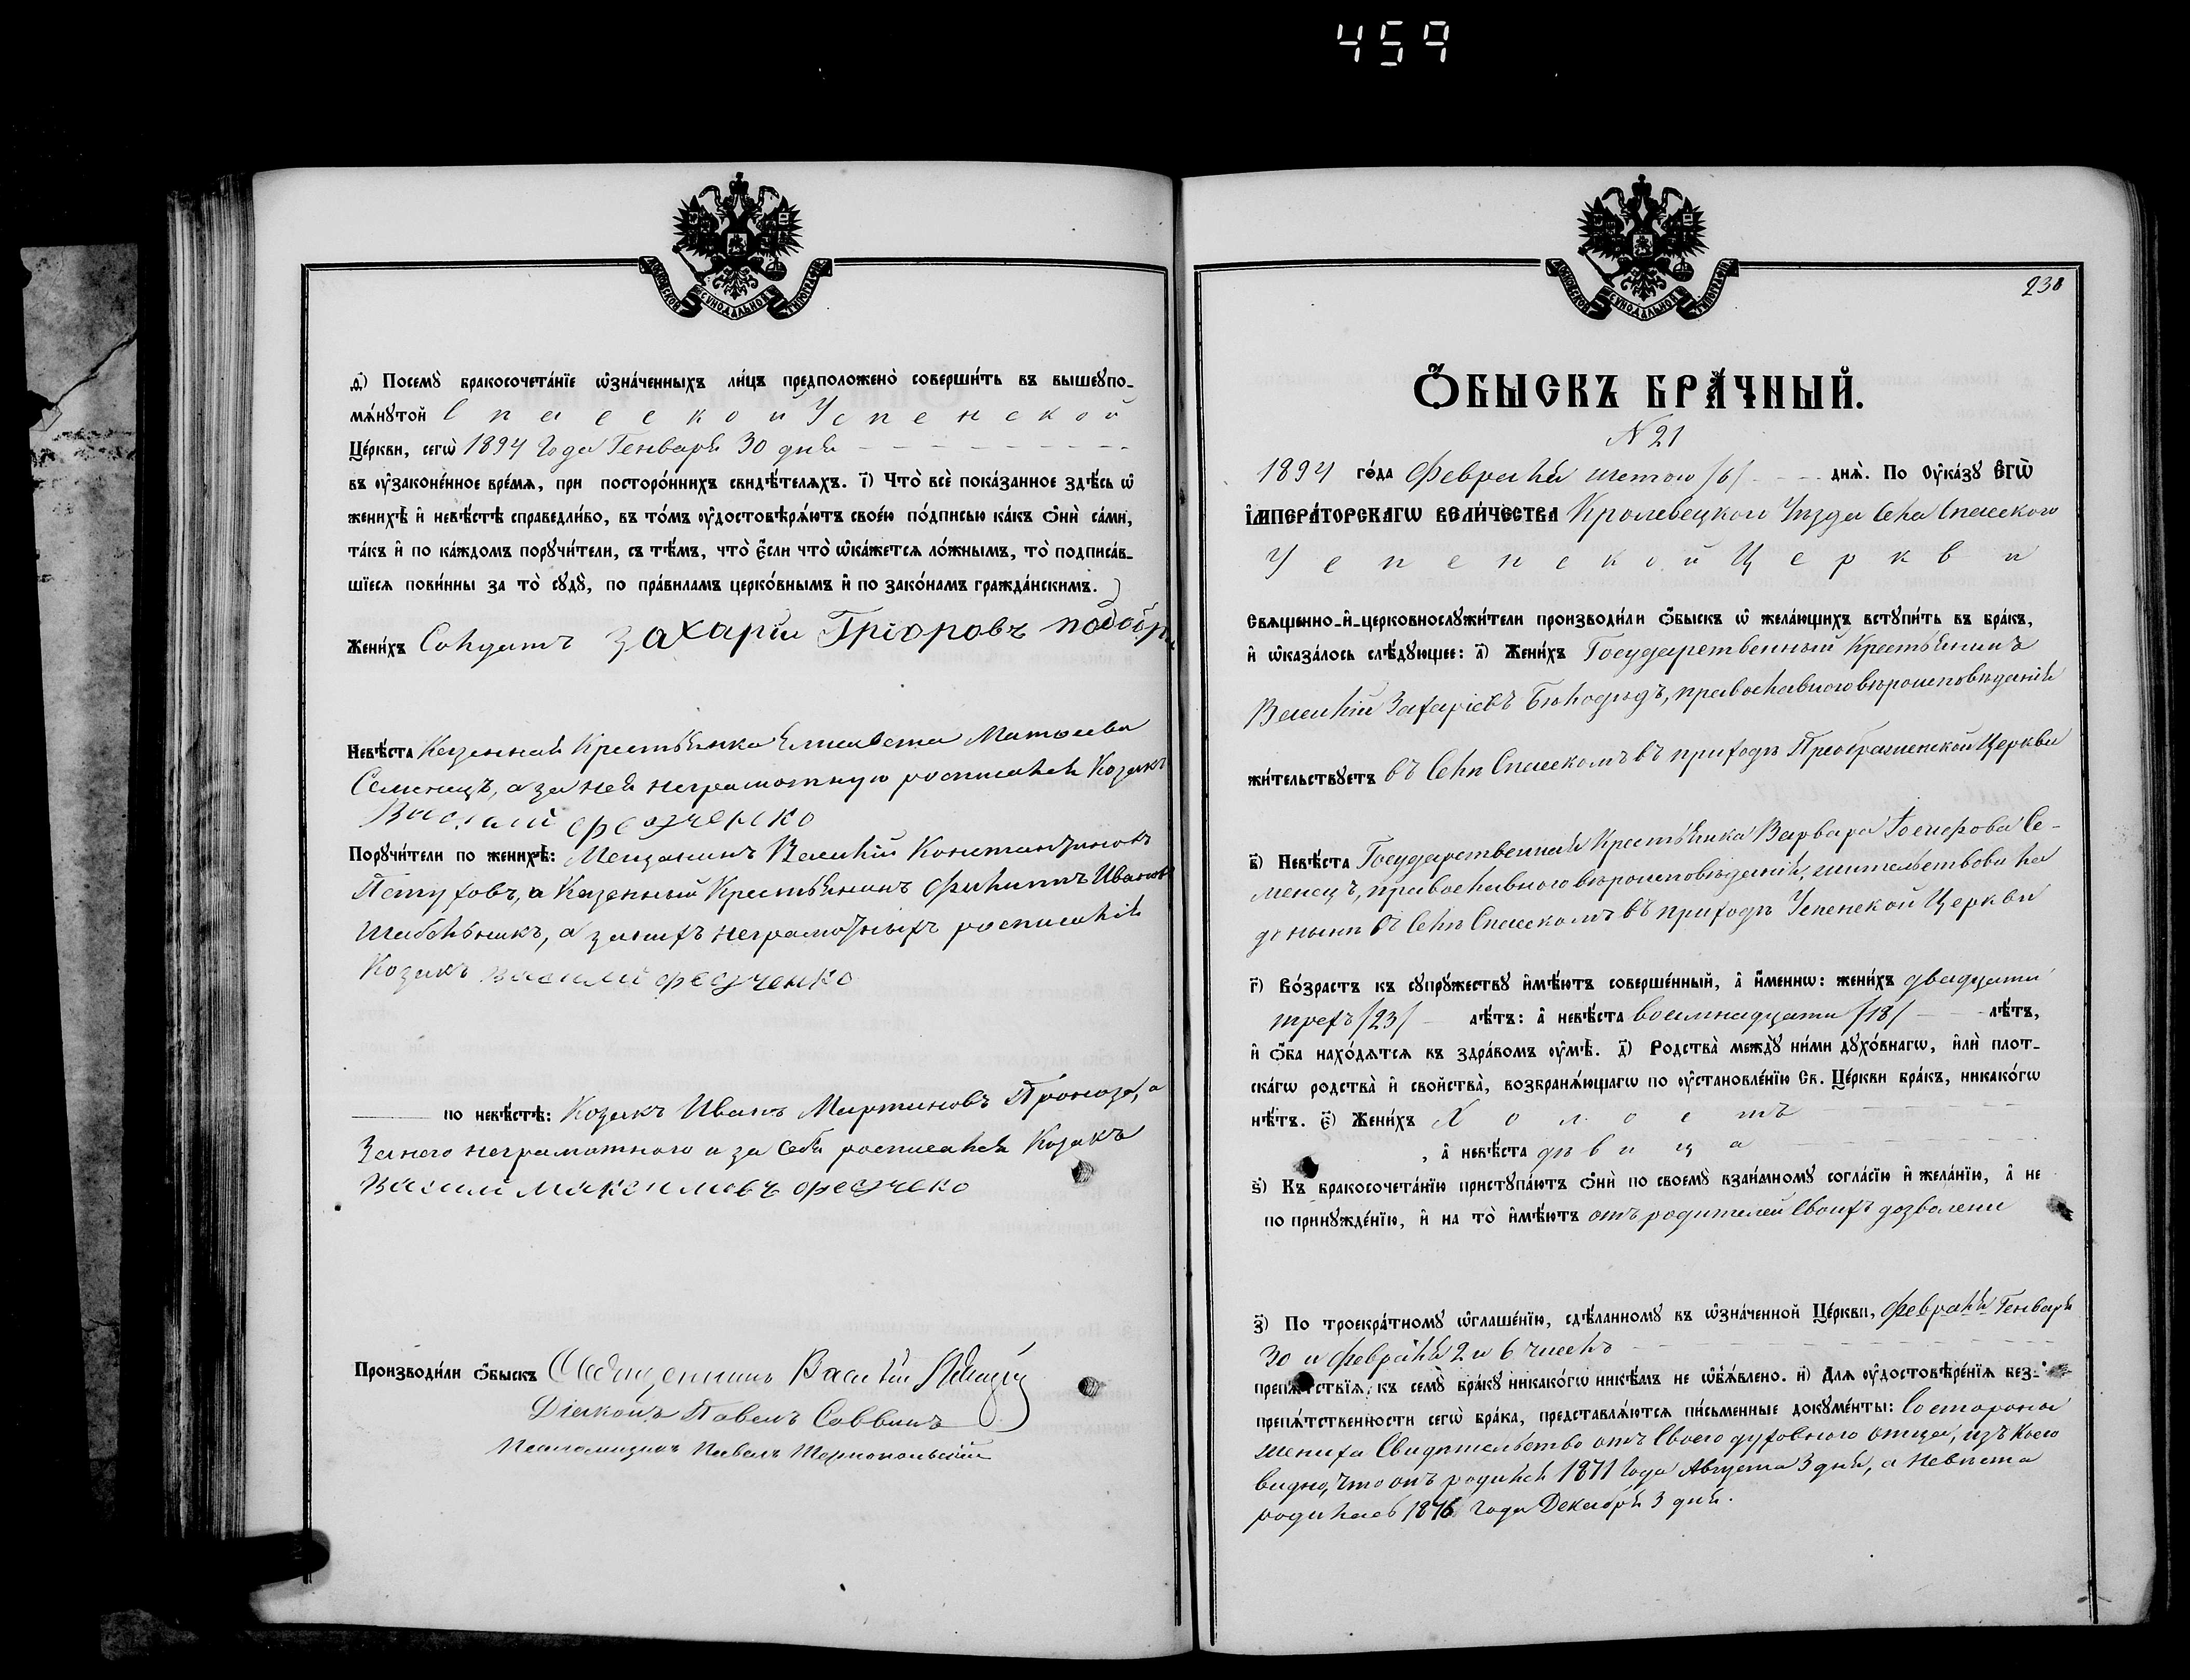 459
МОСКОВСКОЙ СѴНОДАЛЬНОЙ ТИПОГРАФІИ
д҃) Посемꙋ̀ бракосочета́нїе ѡ҆зна́ченныхъ ли́цъ предположено̀ соверши́ть въ вышеꙋпо-
мѧ́нꙋтой Спасской Успенской
Це́ркви, сегѡ̀ 1894 Года Генваря 30 дня
въ ᲂу҆законе́нное вре́мѧ, при посторо́ннихъ свидѣ́телѧхъ. і҃) Что̀ всѐ пока́занное здѣ́сь ѡ҆
женихѣ̀ и҆ невѣ́стѣ справедли́во, въ то́мъ ᲂу҆достовѣрѧ́ютъ свое́ю по́дписью ка́къ ѻ҆нѝ са́ми,
та́къ и҆ по ка́ждомъ порꙋчи́тели, съ тѣ́мъ, что̀ є҆́сли что̀ ѡ҆ка́жетсѧ ло́жнымъ, то̀ подписа́в-
шїесѧ пови́нны за то̀ сꙋдꙋ̀, по пра́виламъ церко́внымъ и҆ по зако́намъ гражда́нскимъ.
Жени́хъ Солдатъ Захарій Грігоровъ
Невѣ́ста Казенная Крестьянка Елисавета Матвеева
Семенецъ, а за нея неграмотную росписался Козакъ
Василий Федченко
Порꙋчи́тели по женихѣ̀: Мещанинъ Василій Константиновъ
Петуховъ, а Казенный Крестьянинъ Филиппъ Ивановъ
а за нихъ неграмотныхъ росписался
Козакъ Василий Федченко
по невѣ́стѣ: Козакъ Иванъ Мартиновъ а
За него неграмотного и за себя росписался Козакъ
Василий Максимовъ Федчеко
Производи́ли ѻ҆́быскъ Священникъ Василій
Діаконъ Павелъ Саввинъ
Псаломщикъ Павелъ
МОСКОВСКОЙ СѴНОДАЛЬНОЙ ТИПОГРАФІИ
238
Ѻ҆́БЫСКЪ БРА́ЧНЫЙ.
N 21
1894 го́да Февраля шетого /6/ днѧ̀. По Оу҆ка́зꙋ Є҆ГѠ̀
І҆МПЕРА́ТОРСКАГѠ ВЕЛИ́ЧЕСТВА Кролевецкого Уѣзда Села Спасского
Успенской Церкви
Свѧщенно-и҆-церковнослꙋжи́тели производи́ли ѻ҆́быскъ ѡ҆ жела́ющихъ встꙋпи́ть въ бра́къ,
и҆ ѡ҆каза́лось слѣ́дꙋющее: а҃) Жени́хъ Государственный Крестьянинъ
Василий Захаріевъ Бѣлодѣдъ, православного вѣроисповѣданія
жи́тельствꙋетъ въ Селѣ Спасскомъ въ приходѣ Преображенской Церкви
в҃) Невѣ́ста Государственная Крестьянка Варвара Іосифова Се-
менецъ, православного вѣроисповѣданія, жительствовала
до нынѣ въ Селѣ Спасскомъ въ приходѣ Успенской Церкви
г҃) Во́зрастъ къ сꙋпрꙋ́жествꙋ и҆мѣ́ютъ соверше́нный, а҆ и҆́меннѡ: жени́хъ двадцати
трехъ /23/ лѣ́тъ: а҆ невѣ́ста восемнадцати /18/ лѣ́тъ,
и҆ ѻ҆́ба нахо́дѧтсѧ въ здра́вомъ ᲂу҆мѣ̀. д҃) Родства̀ междꙋ̀ ни́ми дꙋхо́внагѡ, и҆лѝ плот-
ска́гѡ родства̀ и҆ свойства̀, возбранѧ́ющагѡ по ᲂу҆становле́нїю Св. Це́ркви бра́къ, никако́гѡ
нѣ́тъ. є҃) Жени́хъ Холостъ
, а҆ невѣ́ста дѣвица
ѕ҃) Къ бракосочета́нїю пристꙋпа́ютъ ѻ҆нѝ по своемꙋ̀ взаи́мномꙋ согла́сїю и҆ жела́нїю, а҆ не
по принꙋжде́нїю, и҆ на то̀ и҆мѣ́ютъ отъ родителей своихъ дозволение
з҃) По троекра́тномꙋ ѡ҆глаше́нїю, сдѣ́ланномꙋ въ ѡ҆зна́ченной Це́ркви, Февраля Генваря
30 и Февраля 2 и 6 чиселъ
препѧ́тствїѧ къ семꙋ̀ бра́кꙋ никако́гѡ никѣ́мъ не ѡ҆бъѧ́влено. и҃) Длѧ ᲂу҆достовѣре́нїѧ без-
препѧ́тственности сегѡ̀ бра́ка, представлѧ́ютсѧ пи́сьменные докꙋме́нты: Со стороны
жениха Свидѣтельство отъ Своего духовного отца, изъ коего
видно, что онъ родился 1871 Года Августа 3 дня, а невѣста
родилась 1876 Года Декабря 3 дня.